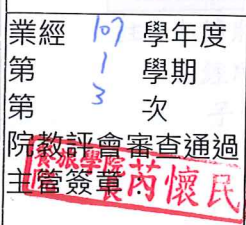 業經 107 學年度
第 1 學期
第 3 次
院教評會審查通過
主管簽章 餐旅學院 院長 芮懷民